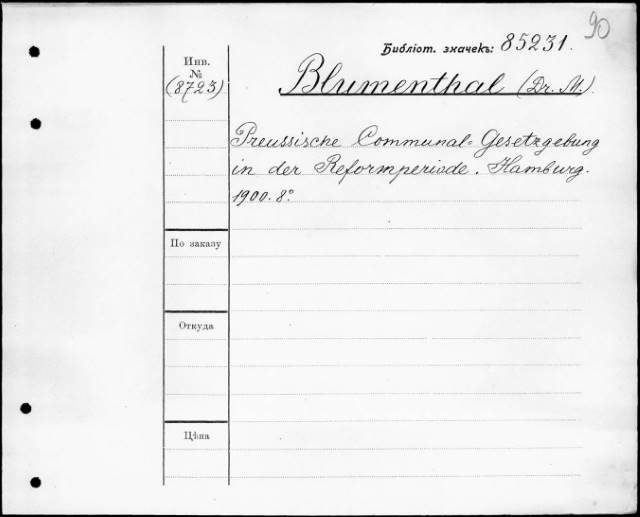 90
Библіот. значекъ: 85231.
Инв.
№
(8723)
Blumenthal (Dr. M.).
Preussische Communal-Gesetzgebung
in der Reformperiode. Hamburg.
1900. 8°
По заказу
Откуда
Цѣна